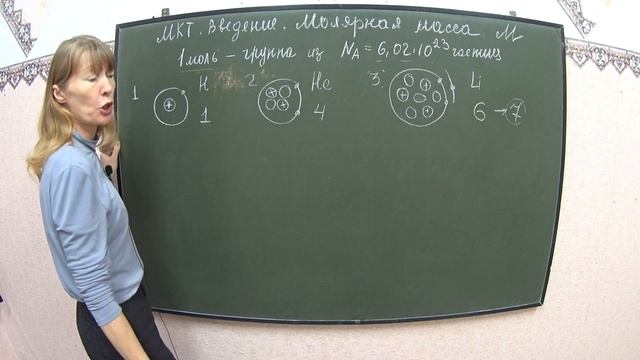 МКТ. Введение. Молярная масса. М
1 моль – группа из NA = 6,02·10²³ частиц
1 + H 2 + + He 3 + + + Li
1 4 6 → 7